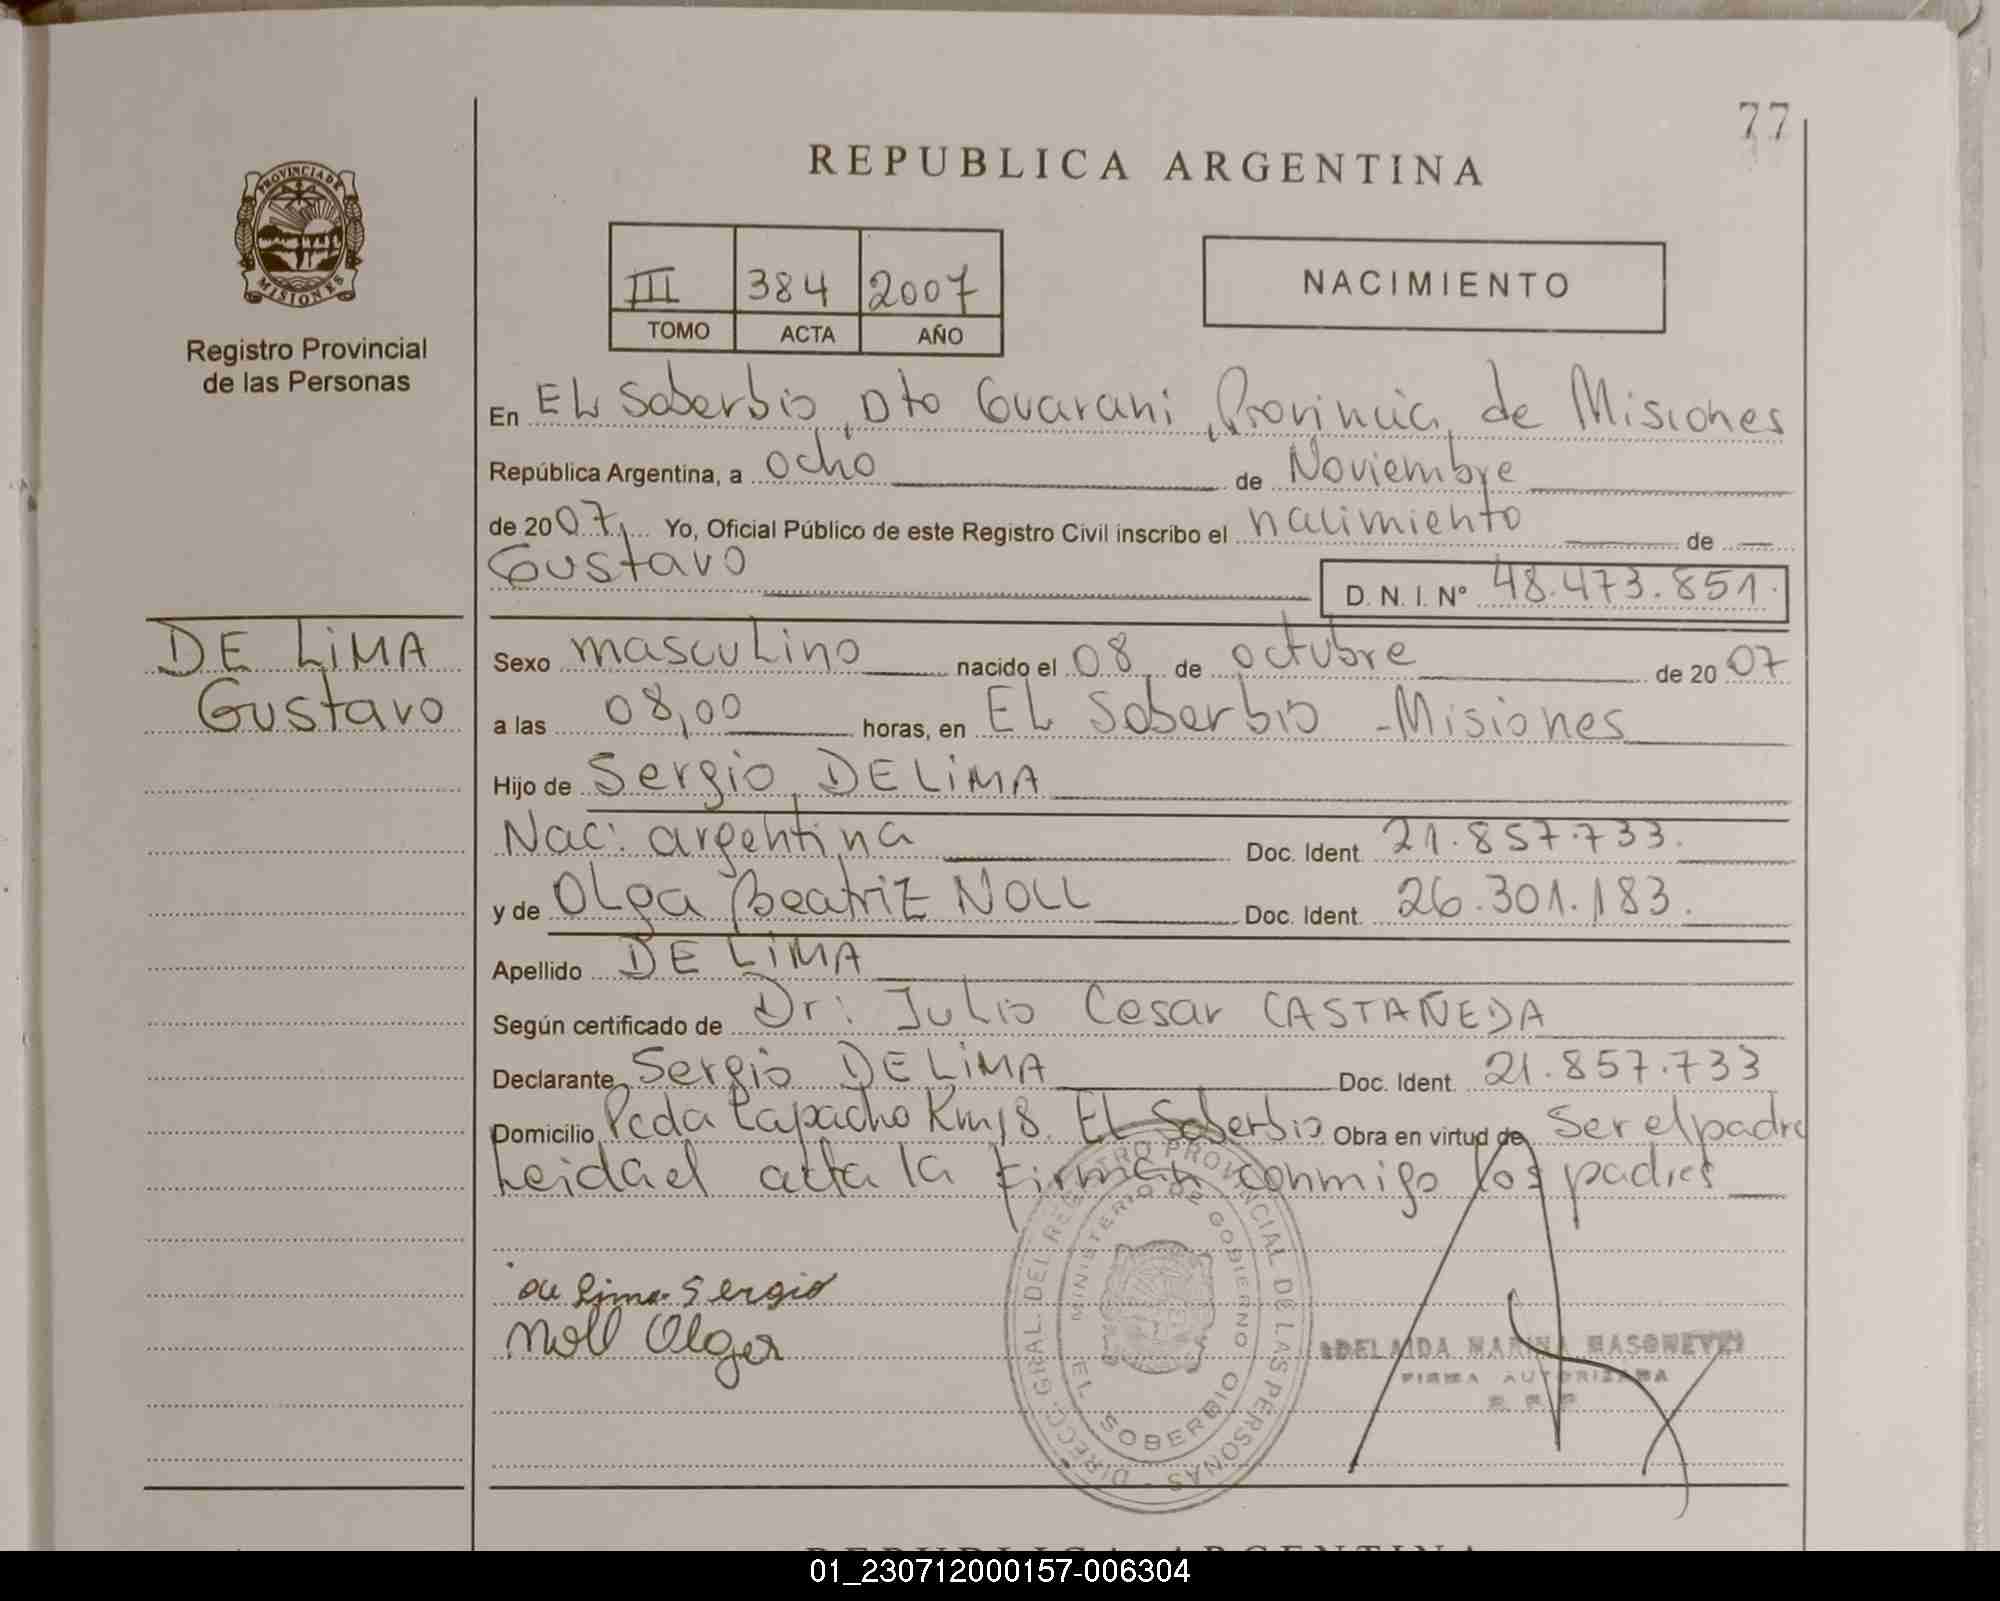 77
REPUBLICA ARGENTINA
PROVINCIA DE MISIONES
Registro Provincial
de las Personas
III 384 2007
TOMO ACTA AÑO
NACIMIENTO
En EL Soberbio, Dto Guarani, Provincia de Misiones
República Argentina, a ocho de Noviembre
de 2007, Yo, Oficial Público de este Registro Civil inscribo el nacimiento de
Gustavo D. N. I. Nº 48.473.851.
DE LiMA
Gustavo
Sexo masculino nacido el 08 de octubre de 2007
a las 08,00 horas, en EL Soberbio - Misiones
Hijo de Sergio DE LiMA
Nac: argentina Doc. Ident. 21.857.733.
y de OLga Beatriz NOLL Doc. Ident. 26.301.183.
Apellido DE LiMA
Según certificado de Dr: Julio Cesar CASTAÑEDA
Declarante Sergio DE LiMA Doc. Ident. 21.857.733
Domicilio Pcda Lapacho Km 18. EL Soberbio Obra en virtud de Ser el padre
Leida el acta la firman conmigo los padres
de Lima Sergio
Noll Olga
DIRECC. GRAL. DEL REGISTRO PROVINCIAL DE LAS PERSONAS
MINISTERIO DE GOBIERNO
EL SOBERBIO
ADELAIDA MARINA
FIRMA AUTORIZADA
REPUBLICA ARGENTINA
01_230712000157-006304